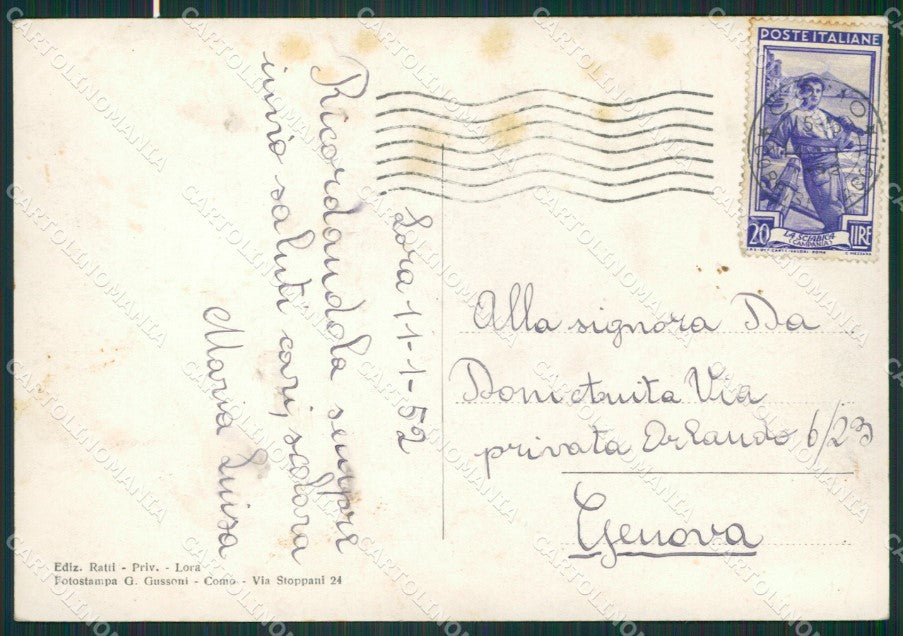 Lora 11-1-52
Ricordandola sempre
invio saluti cari, scolara
Maria Luisa
POSTE ITALIANE
20 LIRE
LA SCIABICA
(CAMPANIA)
Alla signora Da
Via
privata Orlando 6/23
Genova
Ediz. Ratti - Priv. - Lora
Fotostampa G. Gussoni - Como - Via Stoppani 24
CARTOLINOMANIA